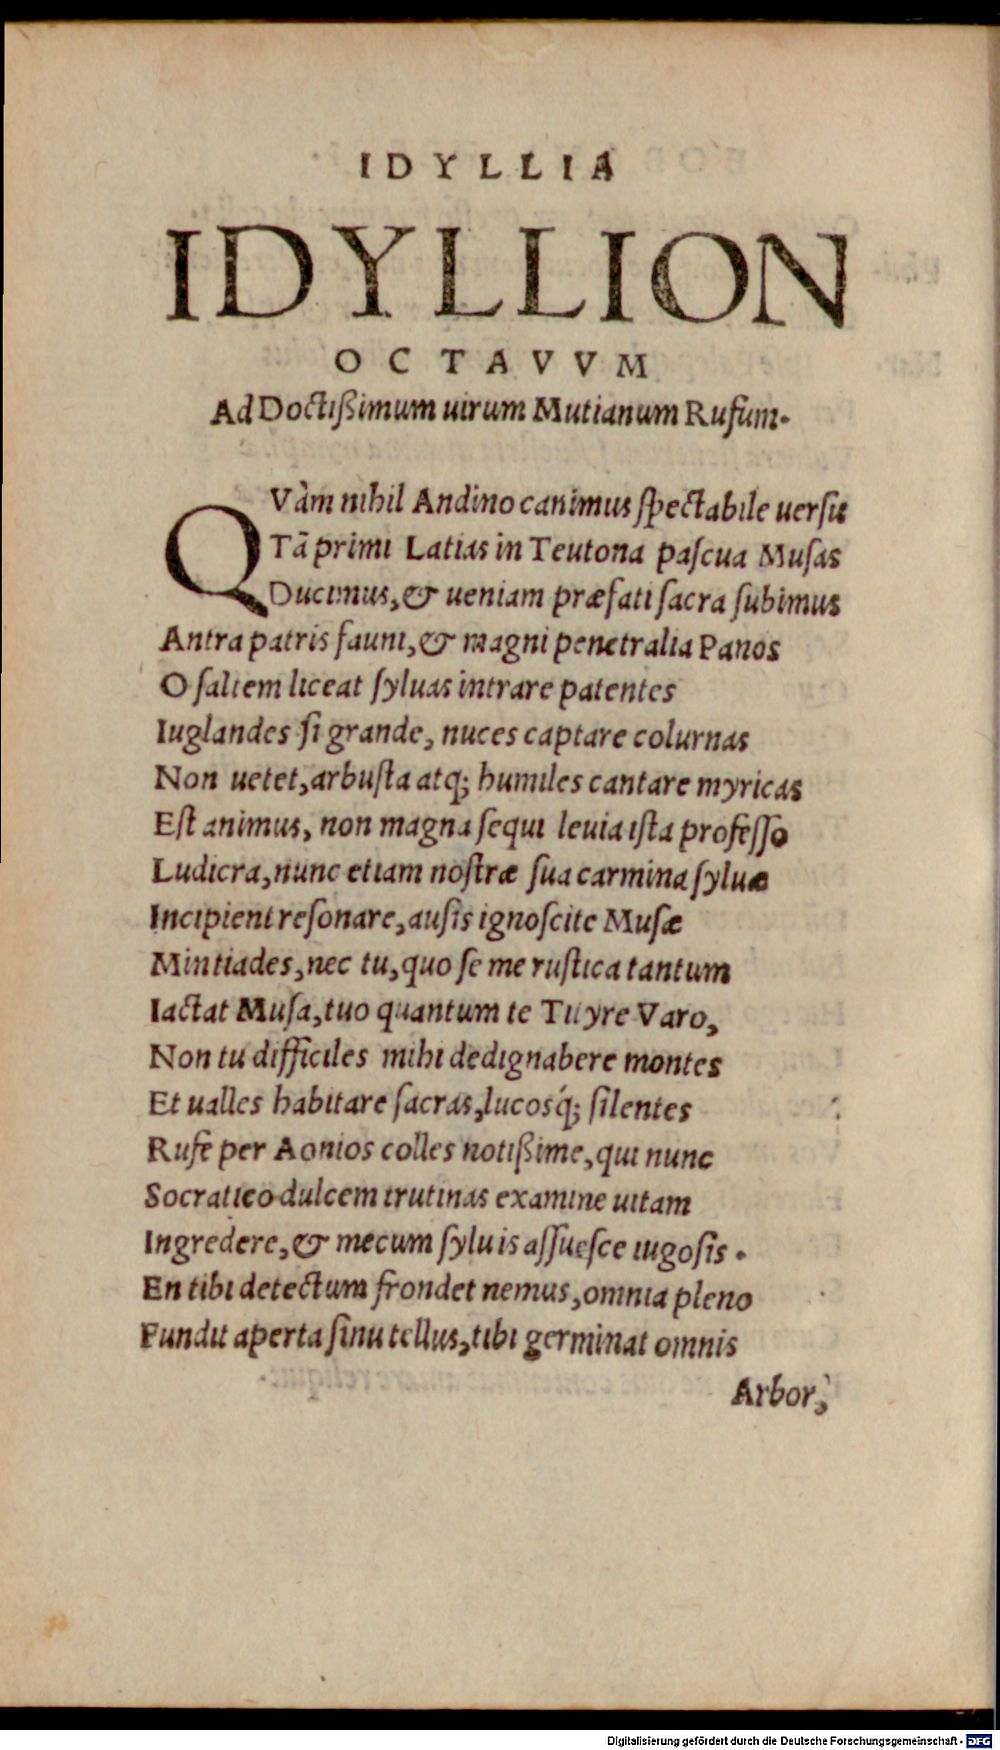 IDYLLIA
IDYLLION
OCTAVVM
Ad Doctißimum uirum Mutianum Rufum.
QVàm nihil Andino canimus ſpectabile uerſu
Tā primi Latias in Teutona paſcua Muſas
Ducimus, & ueniam præfati ſacra ſubimus
Antra patris fauni, & magni penetralia Panos
O ſaltem liceat ſyluas intrare patentes
Iuglandes ſi grande, nuces captare colurnas
Non uetet, arbuſta atq; humiles cantare myricas
Eſt animus, non magna ſequi leuia iſta profeſſo
Ludicra, nunc etiam noſtræ ſua carmina ſyluæ
Incipient reſonare, auſis ignoſcite Muſæ
Mintiades, nec tu, quo ſe me ruſtica tantum
Iactat Muſa, tuo quantum te Tityre Varo,
Non tu difficiles mihi dedignabere montes
Et ualles habitare ſacras, lucosq́; ſilentes
Rufe per Aonios colles notißime, qui nunc
Socratico dulcem trutinas examine uitam
Ingredere, & mecum ſyluis aſſueſce iugoſis.
En tibi detectum frondet nemus, omnia pleno
Fundit aperta ſinu tellus, tibi germinat omnis
Arbor,
Digitalisierung gefördert durch die Deutsche Forschungsgemeinschaft - DFG